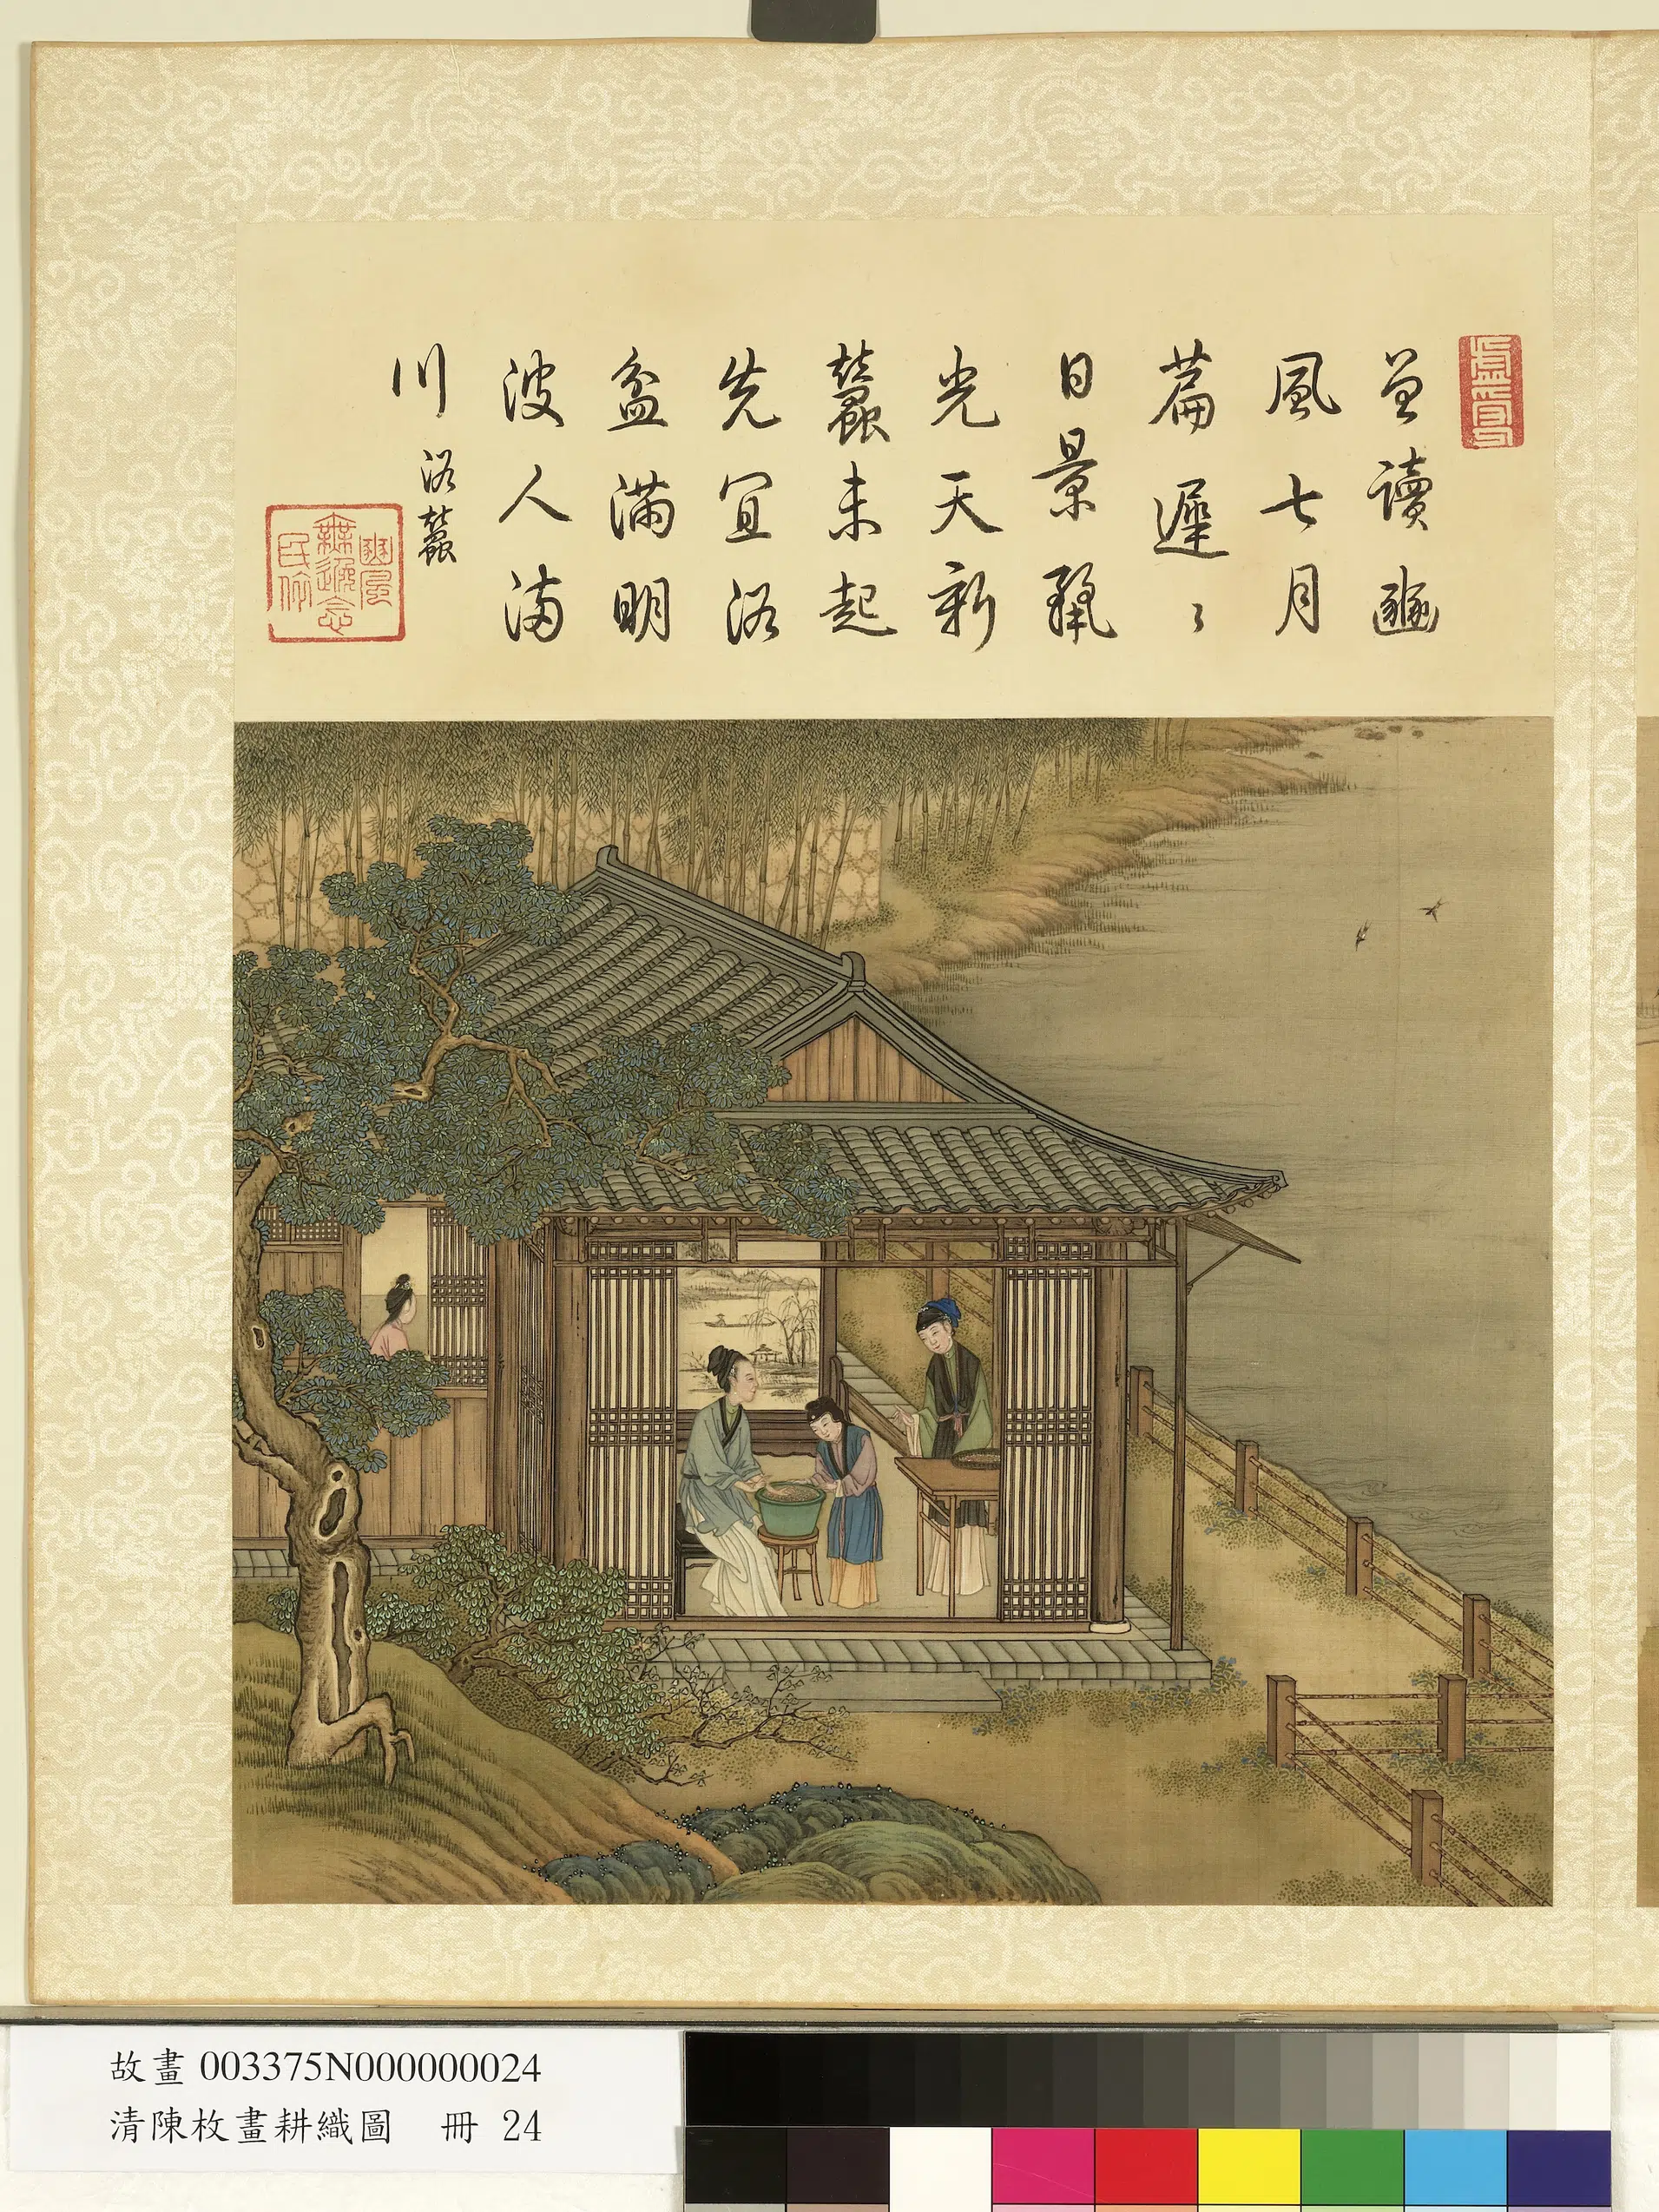 曾讀豳
風七月
篇遲〻
日景
光天新
蠶未起
先宜浴
盆滿明
波人滿
川
浴蠶
豳風
無逸念
民依
故畫 003375N000000024
清陳枚畫耕織圖 冊 24